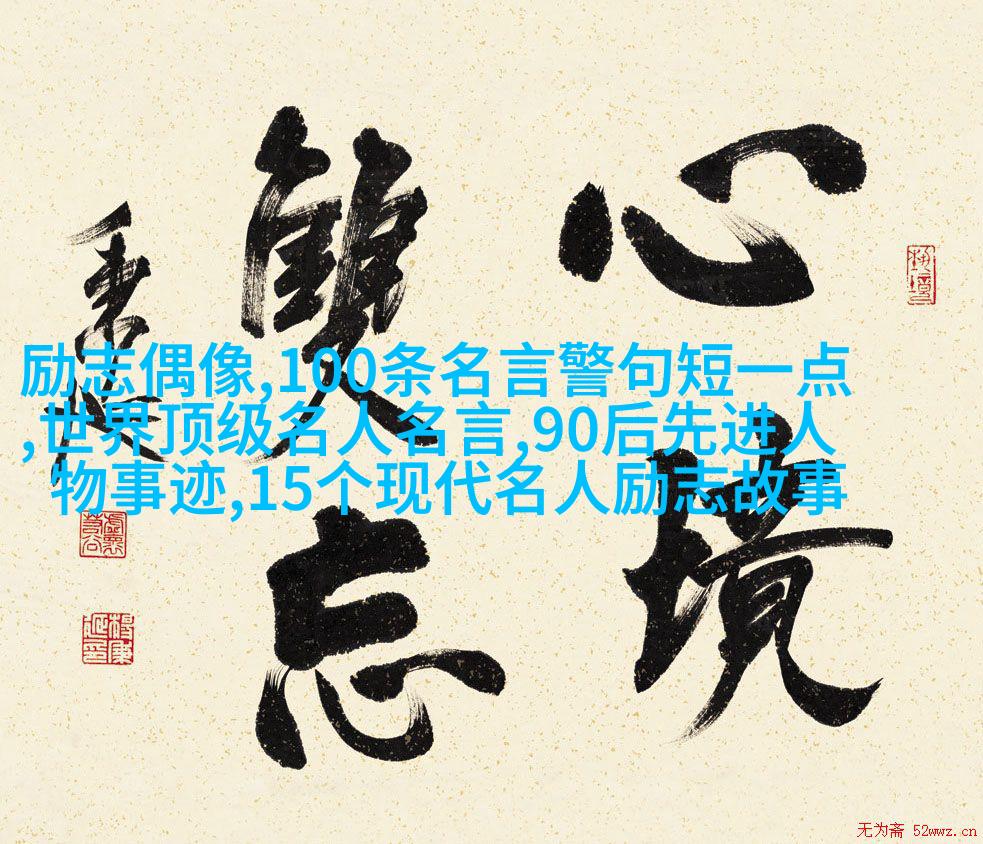 心境
雙忘
励志偶像,100条名言警句短一点
,世界顶级名人名言,90后先进人
物事迹,15个现代名人励志故事
无为斋 52wwz.cn